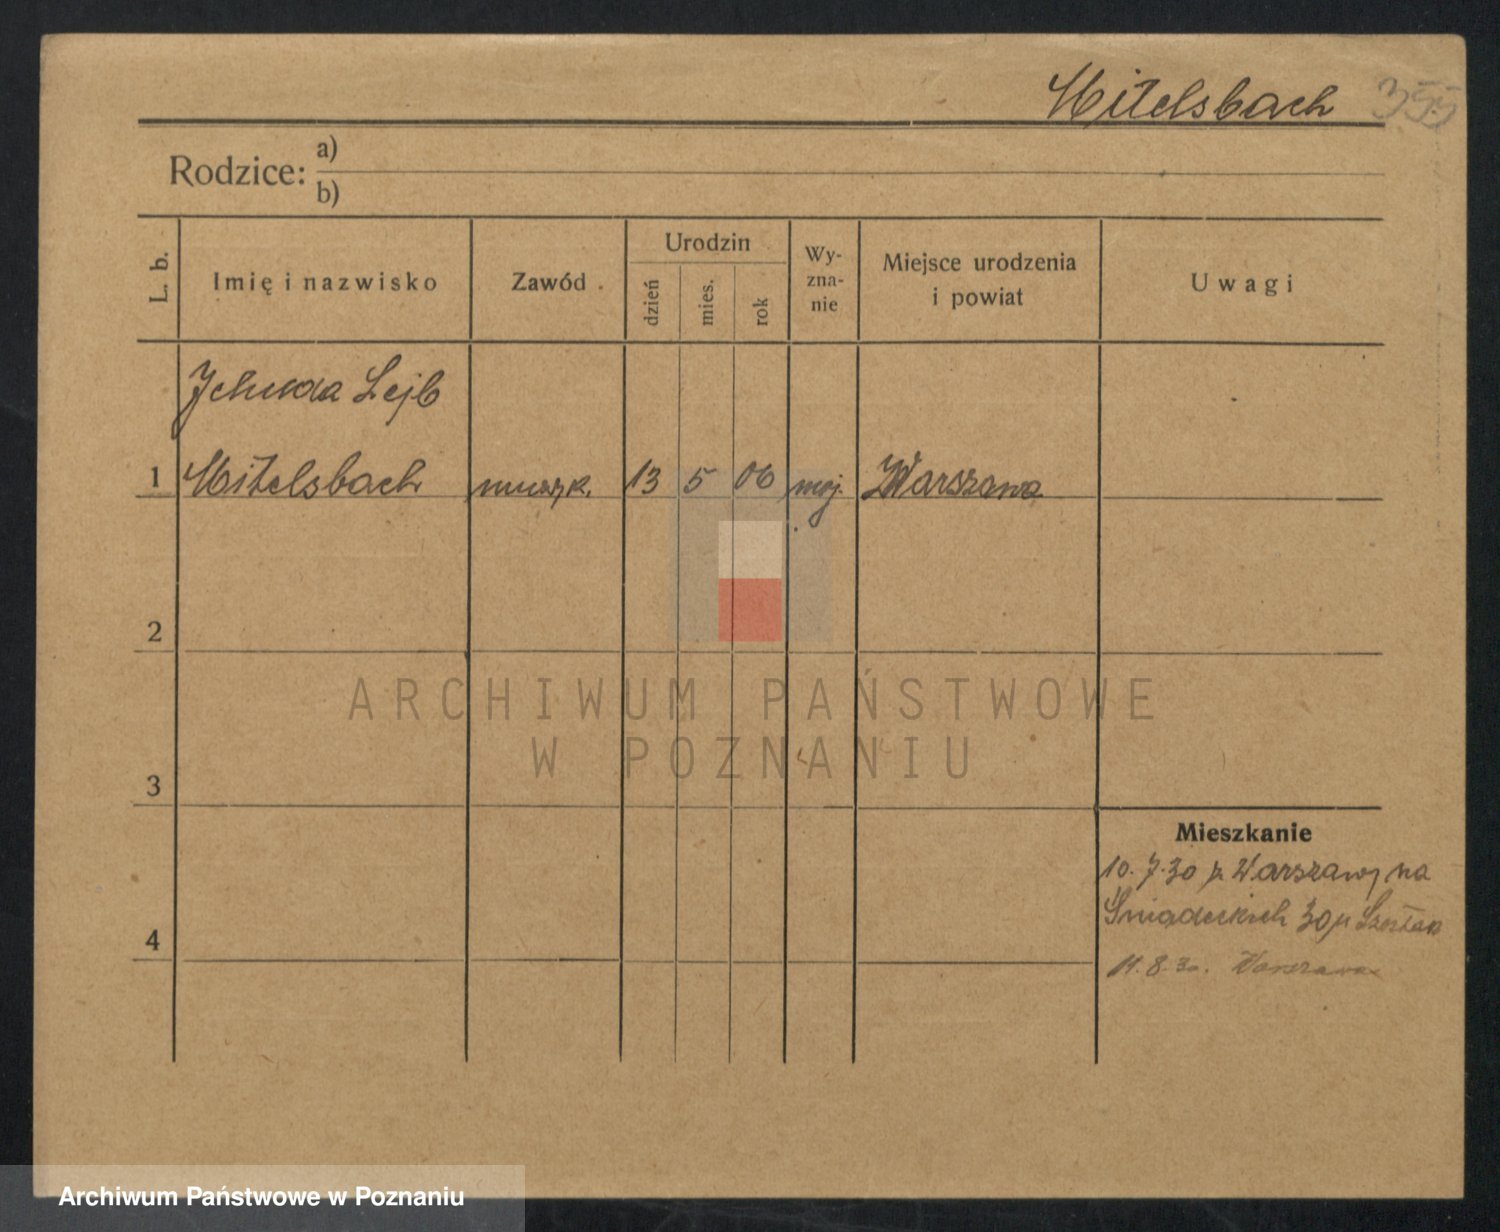 Mitelsbach 355
Rodzice: a)
b)
L. b.
Imię i nazwisko
Zawód
Urodzin
dzień
mies.
rok
Wy-
zna-
nie
Miejsce urodzenia
i powiat
Uwagi
Jehuda Lejb
1 Mitelsbach muzyk. 13 5 06 moj. Warszawa
2
ARCHIWUM PAŃSTWOWE
W POZNANIU
3
Mieszkanie
10.7.30 z Warszawy na
Śniadeckich 30 Szostak
4
11.8.30. Warszawa
Archiwum Państwowe w Poznaniu